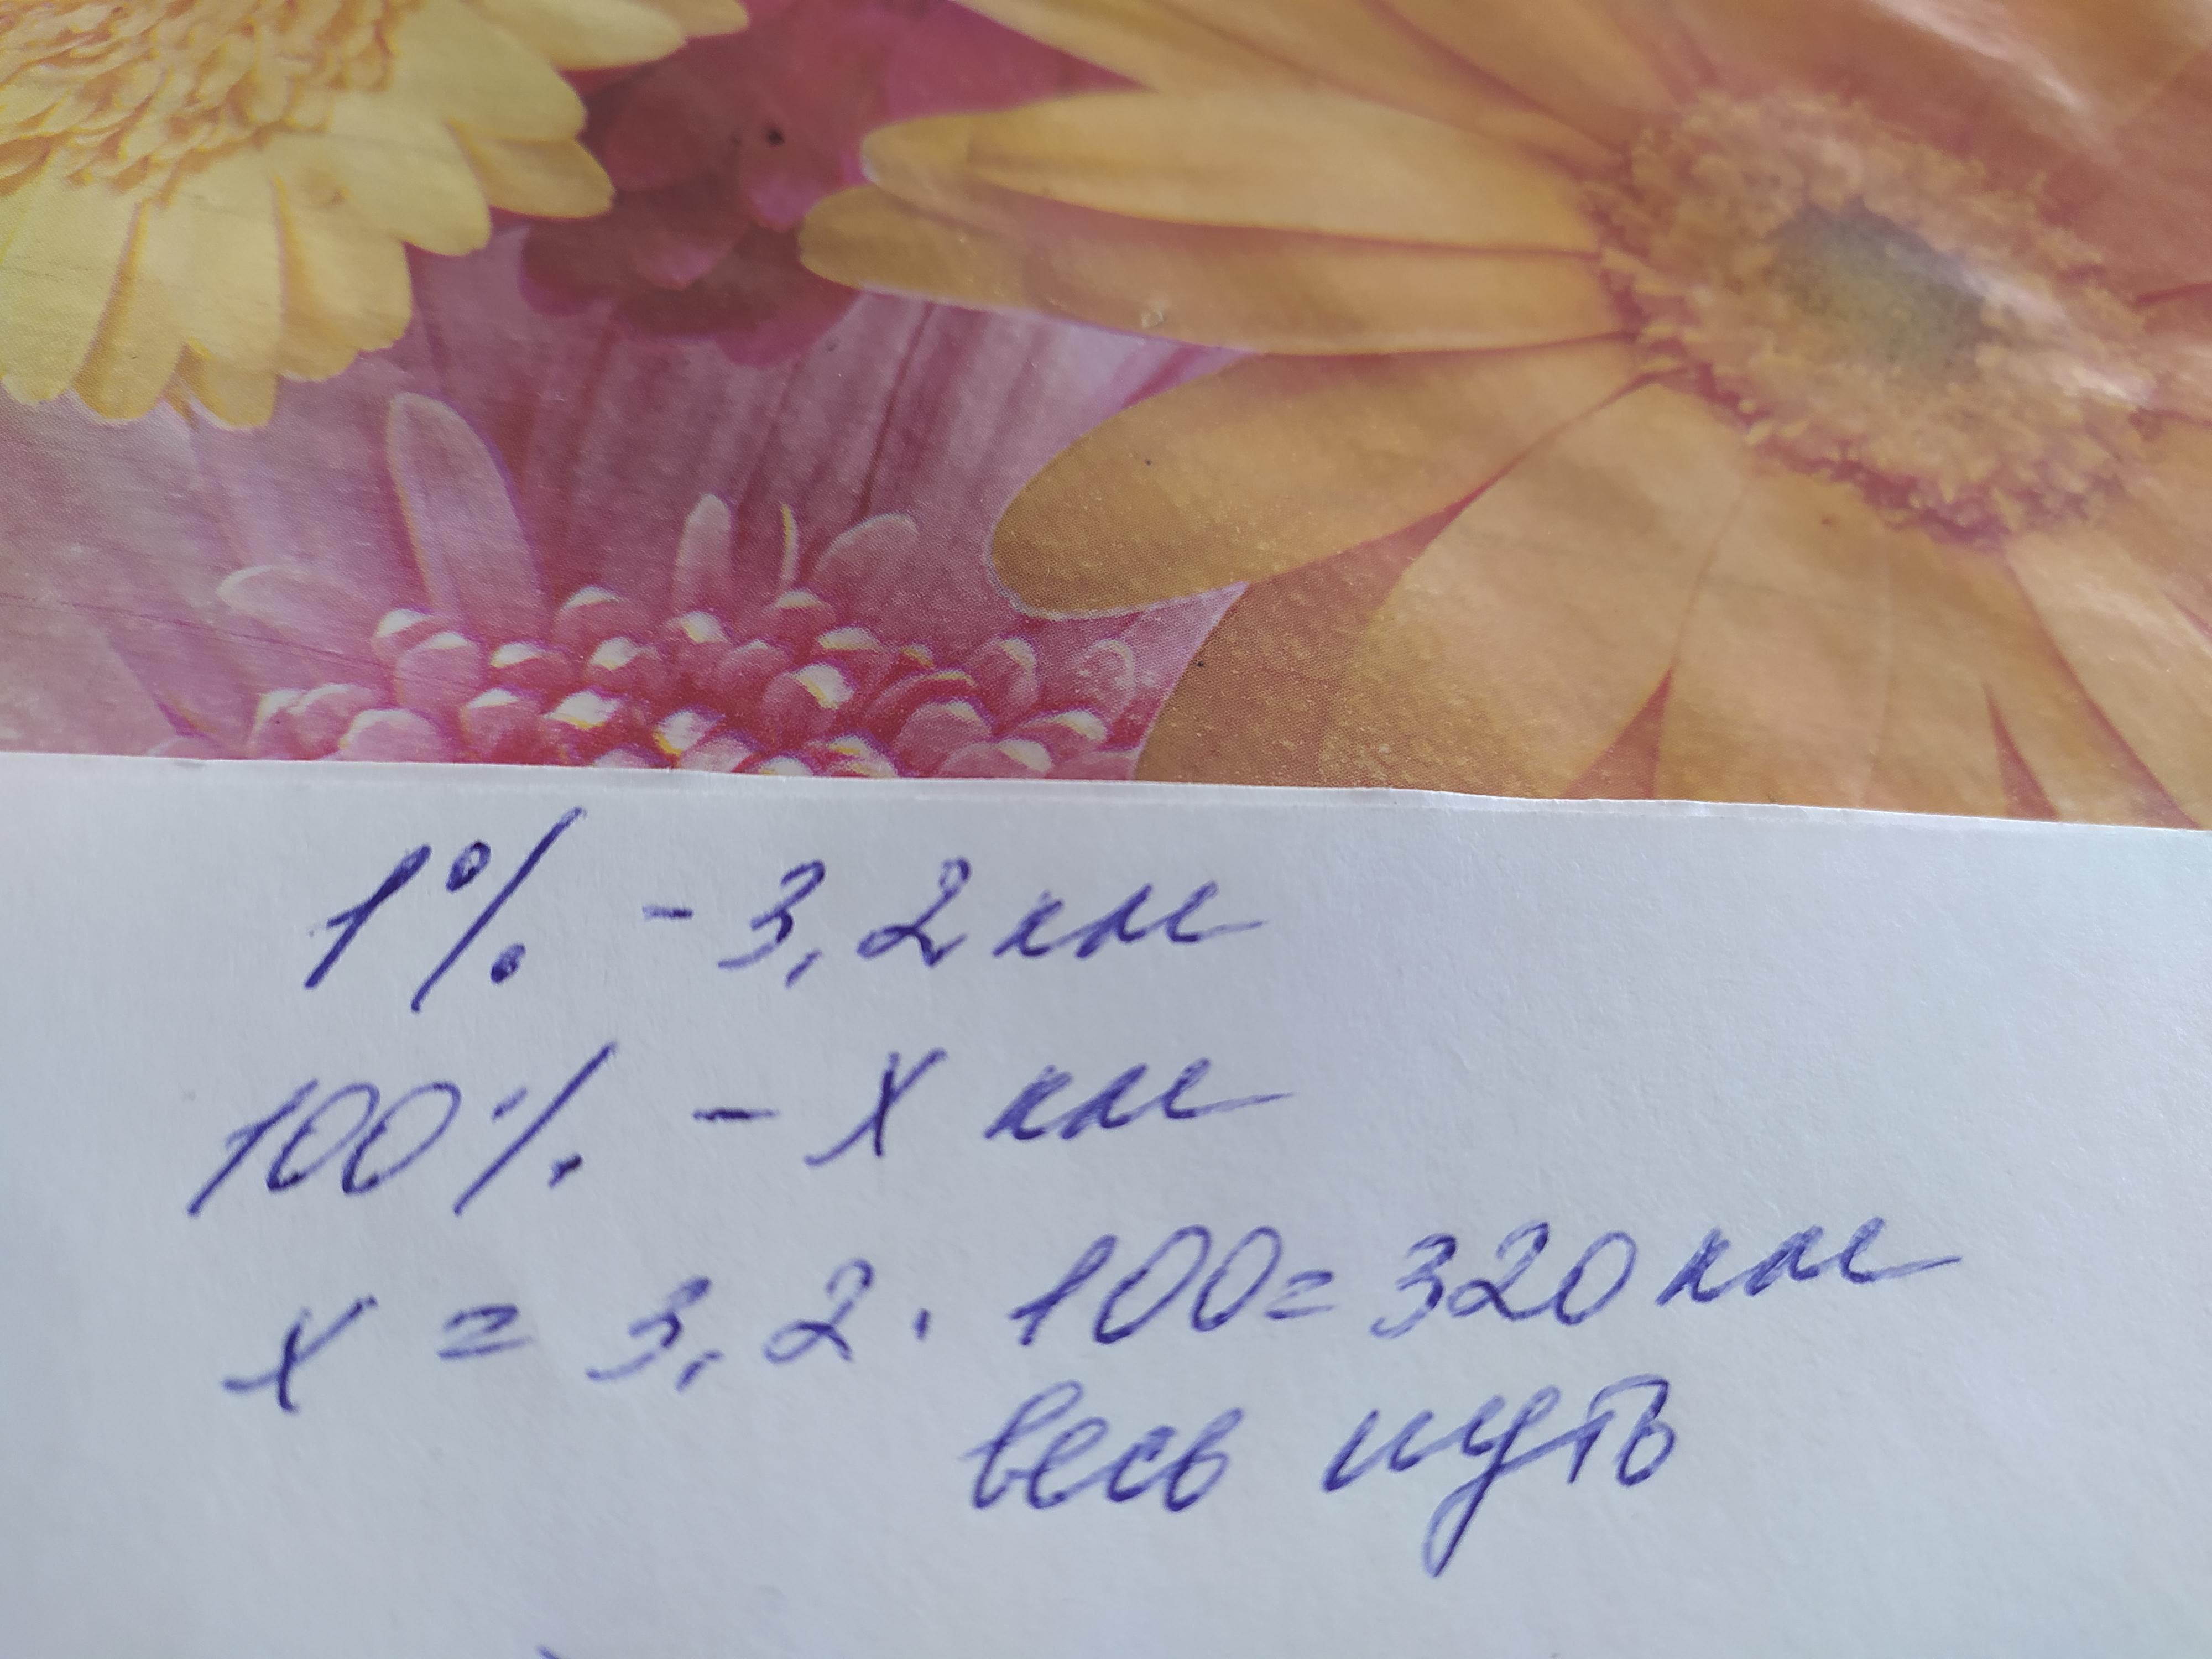 1% - 3,2 км
100% - x км
x = 3,2 · 100 = 320 км
весь путь